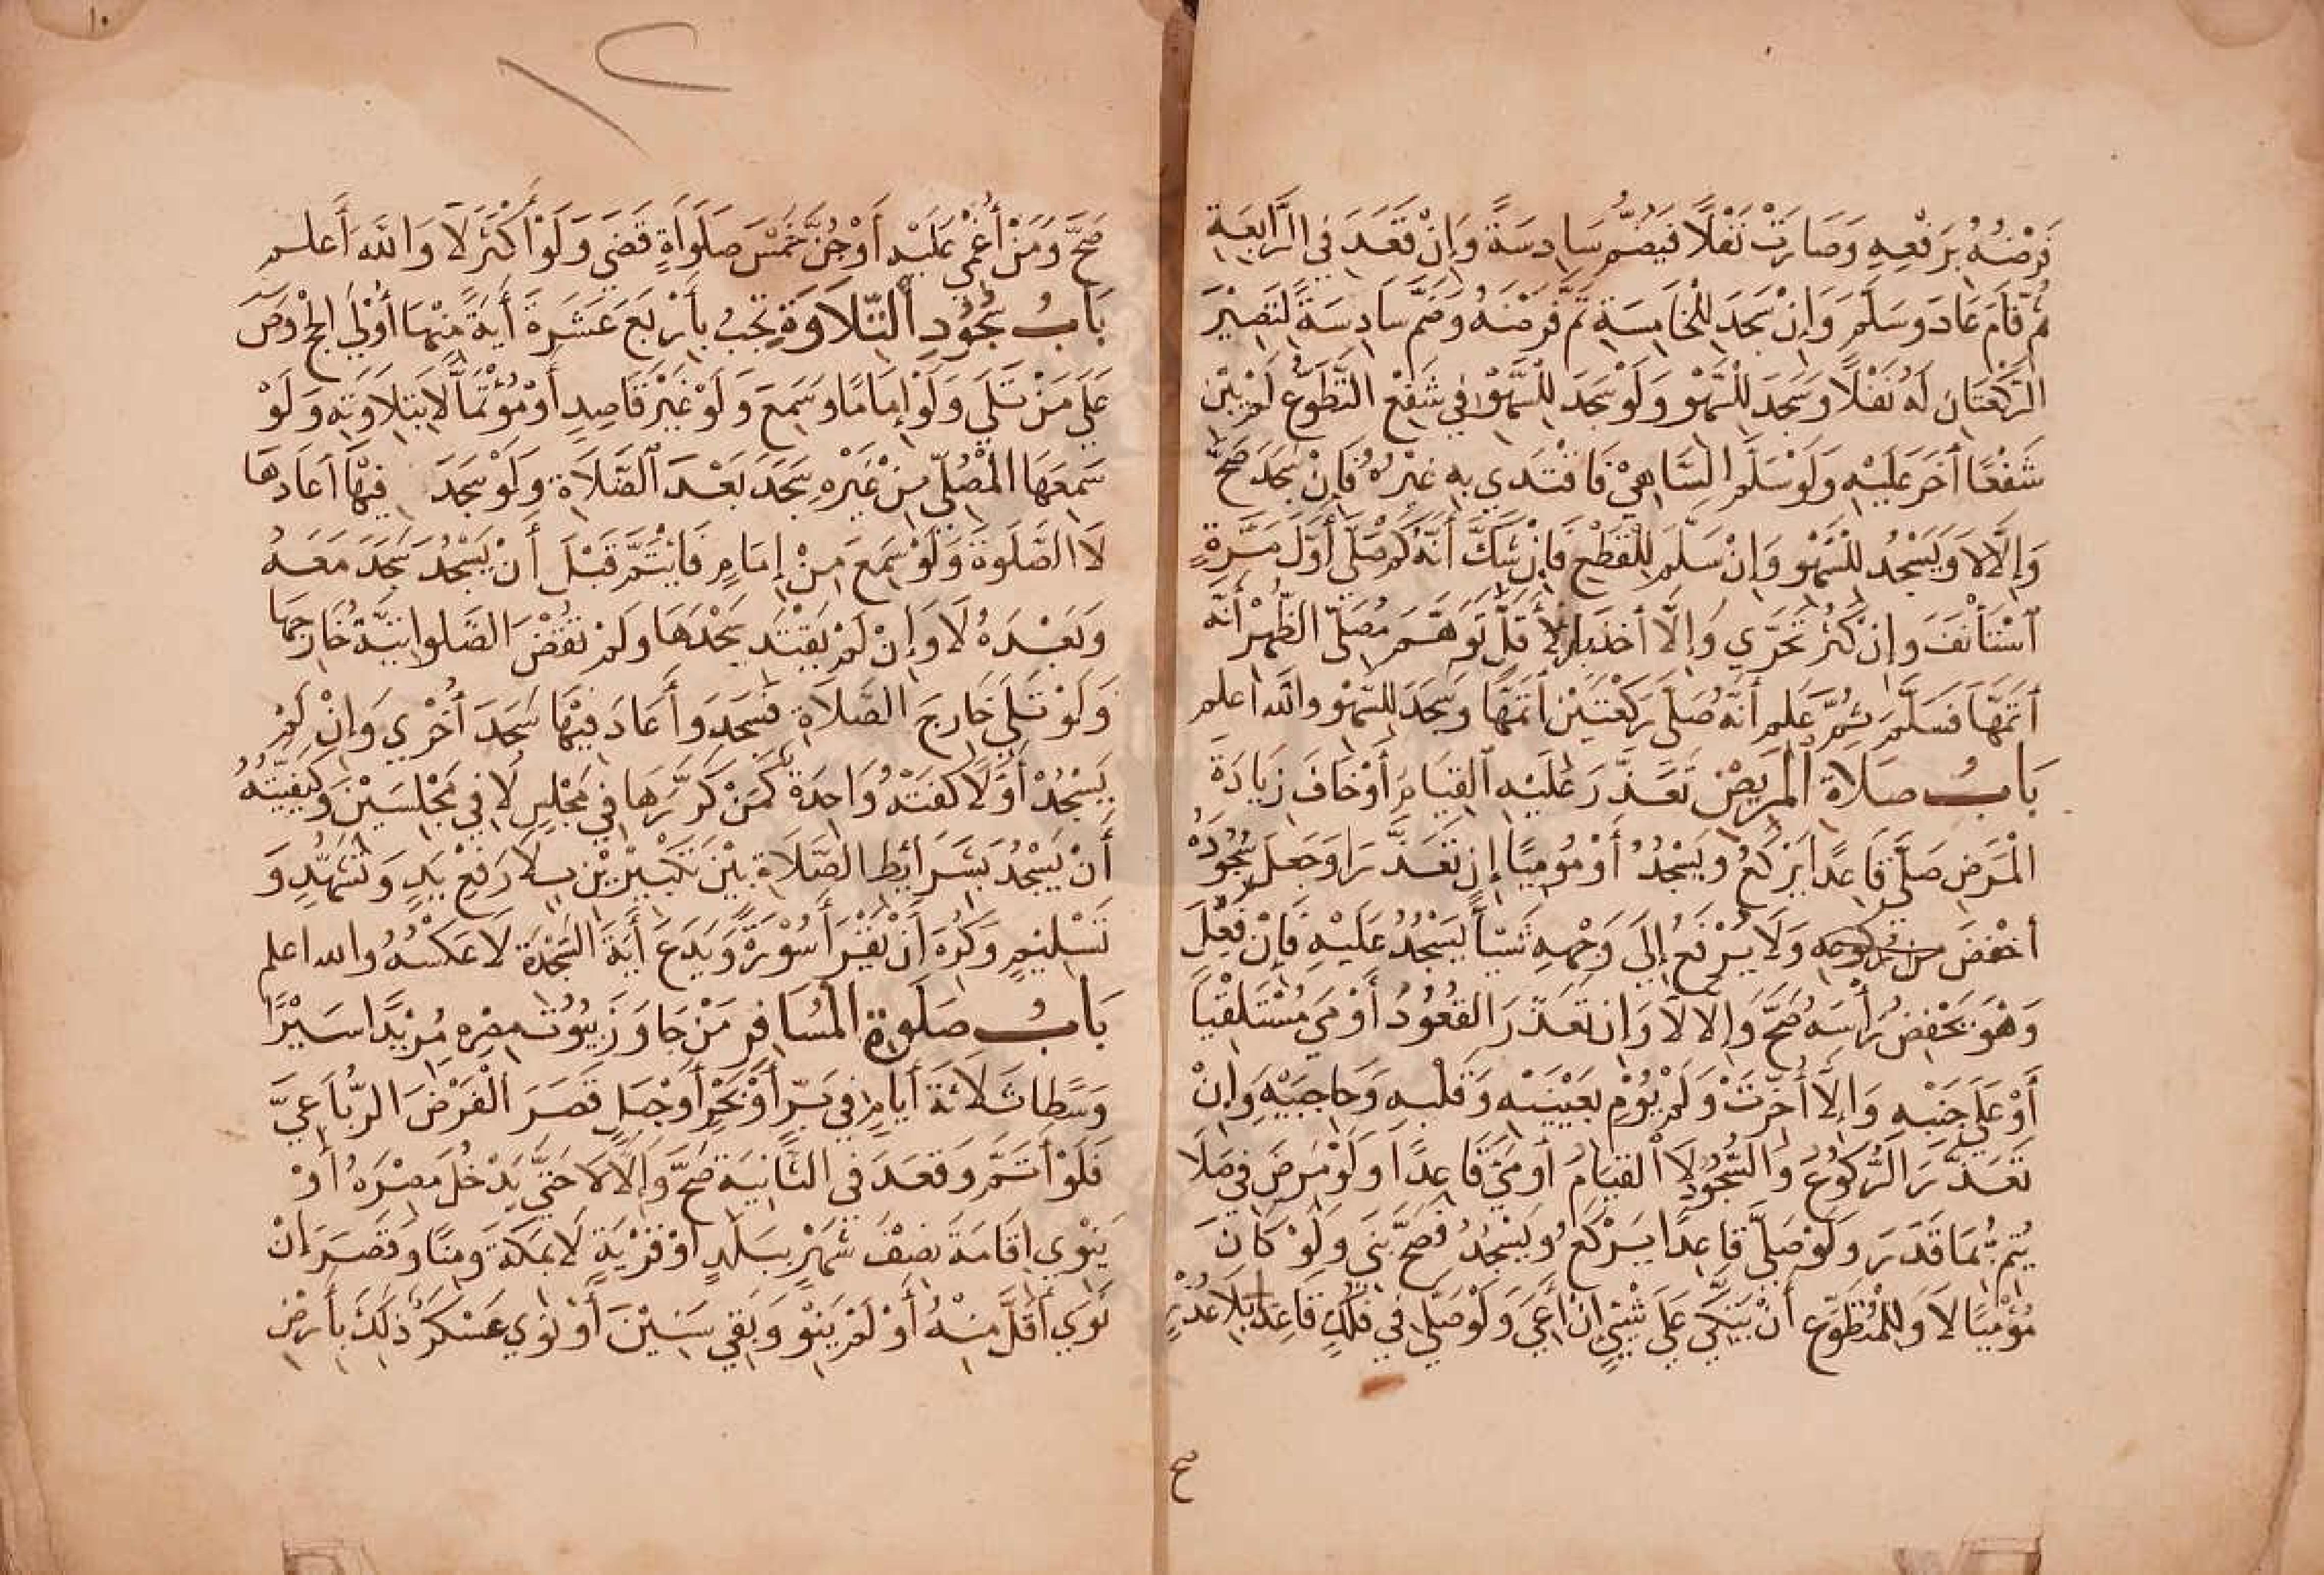 فَرْضُهُ بِرَفْعِهِ وَصَارَتْ نَفْلًا فَيَضُمُّ سَادِسَةً وَإِنْ قَعَدَ فِي الرَّابِعَةِ
ثُمَّ قَامَ عَادَ وَسَلَّمَ وَإِنْ سَجَدَ لِلْخَامِسَةِ تَمَّ فَرْضُهُ وَضَمَّ سَادِسَةً لِتَصِيْرَ
الرَّكْعَتَانِ لَهُ نَفْلًا وَسَجَدَ لِلْسَّهْوِ وَلَوْ سَجَدَ لِلْسَّهْوِ فِي شَفْعِ التَّطَوُّعِ لَمْ يَبْنِ
شَفْعًا أَخَرَ عَلَيْهِ وَلَوْ سَلَّمَ السَّاهِيْ فَاقْتَدِي بِهِ غَيْرُهُ فَإِنْ سَجَدَ صَحَّ
وَإِلَّا لَا وَيَسْجُدُ لِلْسَّهْوِ وَإِنْ سَلَّمَ لِلْقَطْعِ فَإِنْ شَكَّ أَنَّهُ كَمْ صَلَّي أَوَّلَ مَرَّةٍ
اسْتَأْنَفَ وَإِنْ كَثُرَ تَحَرَّي وَإِلَّا أَخَذَ بِالْأَقَلِّ تَوَهَّمَ مُصَلِّي الظُّهْرِ أَنَّهُ
أَتَمَّهَا فَسَلَّمَ ثُمَّ عَلِمَ أَنَّهُ صَلَّى رَكْعَتَيْنِ أَتَمَّهَا وَسَجَدَ لِلسَّهْوِ وَاللَّهُ اعلم
بَابُ صَلَاةِ الْمَرِيْضِ تَعَذَّرَ عَلَيْهِ الْقِيَامُ أَوْ خَافَ زِيَادَةَ
الْمَرَضِ صَلَّى قَاعِدًا يَرْكَعُ وَيَسْجُدُ أَوْ مُومِيًا إِنْ تَعَذَّرَا وَجَعَلَ سُجُوْدَهُ
أَخْفَضَ مِنْ رُكُوعِهِ وَلَا يُرْفَعُ إِلَى وَجْهِهِ شَيْئًا يَسْجُدُ عَلَيْهِ فَإِنْ فَعَلَ
وَهُوَ يَخْفِضُ رَأْسَهُ صَحَّ وَإِلَّا لَا وَإِنْ تَعَذَّرَ القُعُوْدُ أَوْمَي مُسْتَلْقِيًا
أَوْ عَلَى جَنْبِهِ وَإِلَّا أُخِّرَتْ وَلَمْ يُوْمِ بِعَيْنَيْهِ وَقَلْبِهِ وَحَاجِبَيْهِ وَإِنْ
تَعَذَّرَ الرُّكُوْعُ وَالسُّجُوْدُ لَا القِيَامُ أَوْمَيَ قَاعِدًا وَلَوْ مَرِضَ فِي صَلَا
يُتِمُّ بِمَا قَدَرَ وَلَوْ صَلَّى قَاعِدًا يَرْكَعُ وَيَسْجُدُ فَصَحَّ بَنَي وَلَوْ كَانَ
مُوْمِيًا لَا وَلِلْمُتَطَوِّعِ أَنْ يَتَّكِي عَلَى شَيْئٍ إِنْ أَعْيَى وَلَوْ صَلَّى فِي فُلْكٍ قَاعِدًا بِلَا عُذْرٍ
صح
صَحَّ وَمَنْ أُغْمِيَ عَلَيْهِ أَوْ جُنَّ خَمْسَ صَلَوَاةٍ قَضَي وَلَوْ أَكْثَرَ لَا وَاللَّهُ أَعلم
بَابُ سُجُوْدِ التِّلَاوَةِ تَجِبُ بِأَرْبَعَ عَشَرَةَ أَيَةً مِنْهَا أُوْلَى الْحَجِّ وَصَ
عَلَى مَنْ تَلَي وَلَوْ إِمَامًا وَسَمِعَ وَلَوْ غَيْرَ قَاصِدٍ أَوْ مُؤْتَمًّا لَا بِتِلَاوَتِهِ وَلَوْ
سَمِعَهَا الْمُصَلِّي مِنْ غَيْرِهِ سَجَدَ بَعْدَ الصَّلَاةِ وَلَوْ سَجَدَ فِيْهَا أَعَادَهَا
لَا الصَّلَوةَ وَلَوْ سَمِعَ مِنْ إِمَامٍ فَأْتَمَّ قَبْلَ أَنْ يَسْجُدَ سَجَدَ مَعَهُ
وَبَعْدَهُ لَا وَإِنْ لَمْ يَقْتَدِ سَجْدَهَا وَلَمْ تُقْضَ الصَّلواتِيَّةُ خَارِجَهَا
وَلَوْ تَلَي خَارِجَ الصَّلَاةِ فَسَجَدَ وَأَعَادَ فِيْهَا سَجَدَ أُخْرَي وَإِنْ لَمْ
يَسْجُدْ أَوَّلًا كَفَتْهُ وَاحِدَةٌ كَمَنْ كَرَّرَهَا فِي مَجْلِسٍ لَا فِي مَجْلِسَيْنِ وَكَيْفِيَّتُهُ
أَنْ يَسْجُدَ بِشَرَائِطِ الصَّلَاةِ بَيْنَ تَكْبِيْرَتَيْنِ بِلَا رَفْعِ يَدٍ وَتَشَهُّدٍ وَ
تَسْلِيْمٍ وَكُرِهَ أَنْ يَقْرَأَ سُوْرَةً وَيَدَعَ أَيَةَ السَّجْدَةِ لَا عَكْسُهُ والله اعلم
بَابُ صَلَوةِ الْمُسَافِرِ مَنْ جَاوَزَ بُيُوْتَ مِصْرِهِ مُرِيْدًا سَيْرًا
وَسَطًا ثَلَاثَةَ أَيَّامٍ فِي بَرٍّ أَوْ بَحْرٍ أَوْ جَبَلٍ قَصَرَ الْفَرْضَ الرُّبَاعِيَّ
فَلَوْ أَتَمَّ وَقَعَدَ فِي الثَّانِيَةِ صَحَّ وَإِلَّا لَا حَتَّي يَدْخُلَ مِصْرَهُ أَوْ
يَنْوِي إِقَامَةَ نِصْفَ شَهْرٍ بِبَلَدٍ أَوْ قَرْيَةٍ لَا بِمَكَّةَ وَمِنًا وَقَصَرَ إِنْ
نَوَي أَقَلَّ مِنْهُ أَوْ لَمْ يَنْوِ وَبَقِي سَنِيْنَ أَوْ نَوَي عَسْكَرٌ ذَلِكَ بِأَرْضِ